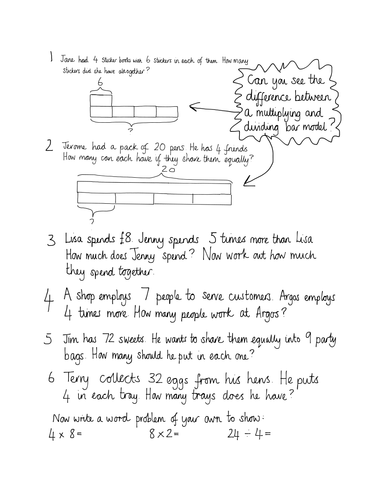 1 Jane had 4 sticker books with 6 stickers in each of them. How many
stickers did she have altogether?
6
?
Can you see the
difference between
a multiplying and
dividing bar model?
2 Jerome had a pack of 20 pens. He has 4 friends
How many can each have if they share them equally?
20
?
3 Lisa spends £8. Jenny spends 5 times more than Lisa
How much does Jenny spend? Now work out how much
they spend together.
4 A shop employs 7 people to serve customers. Argos employs
4 times more. How many people work at Argos?
5 Jim has 72 sweets. He wants to share them equally into 9 party
bags. How many should he put in each one?
6 Terry collects 32 eggs from his hens. He puts
4 in each tray. How many trays does he have?
Now write a word problem of your own to show:
4 x 8 =
8 x 2 =
24 ÷ 4 =